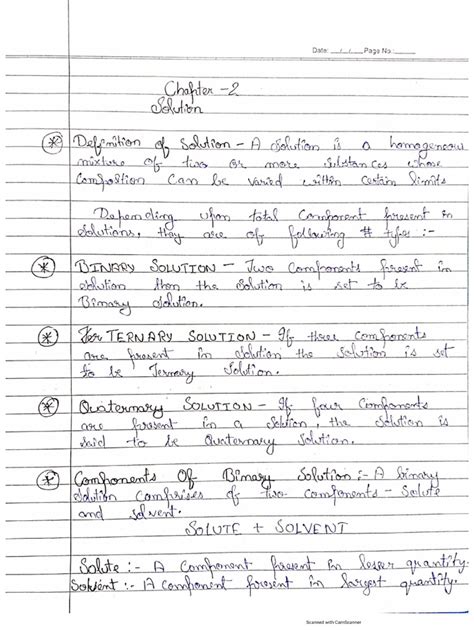 Date: __/__/__ Page No.:____
Chapter -2
Solution
* Definition of Solution - A solution is a homogeneous
mixture of two or more substances whose
Composition can be varied within certain limits
Depending upon total Component present in
solutions, they are of following # types :-
* BINARY SOLUTION - Two Components present in
solution then the solution is set to be
Binary solution.
* Ter TERNARY SOLUTION - If three components
are present in solution the solution is set
to be Ternary Solution.
* Quaternary SOLUTION - If four Components
are present in a solution, the solution is
said to be Quaternary Solution.
* Components Of Binary Solution :- A binary
solution comprises of two components - Solute
and solvent.
SOLUTE + SOLVENT
Solute :- A Component present in lesser quantity.
Solvent :- A Component present in largest quantity.
Scanned with CamScanner